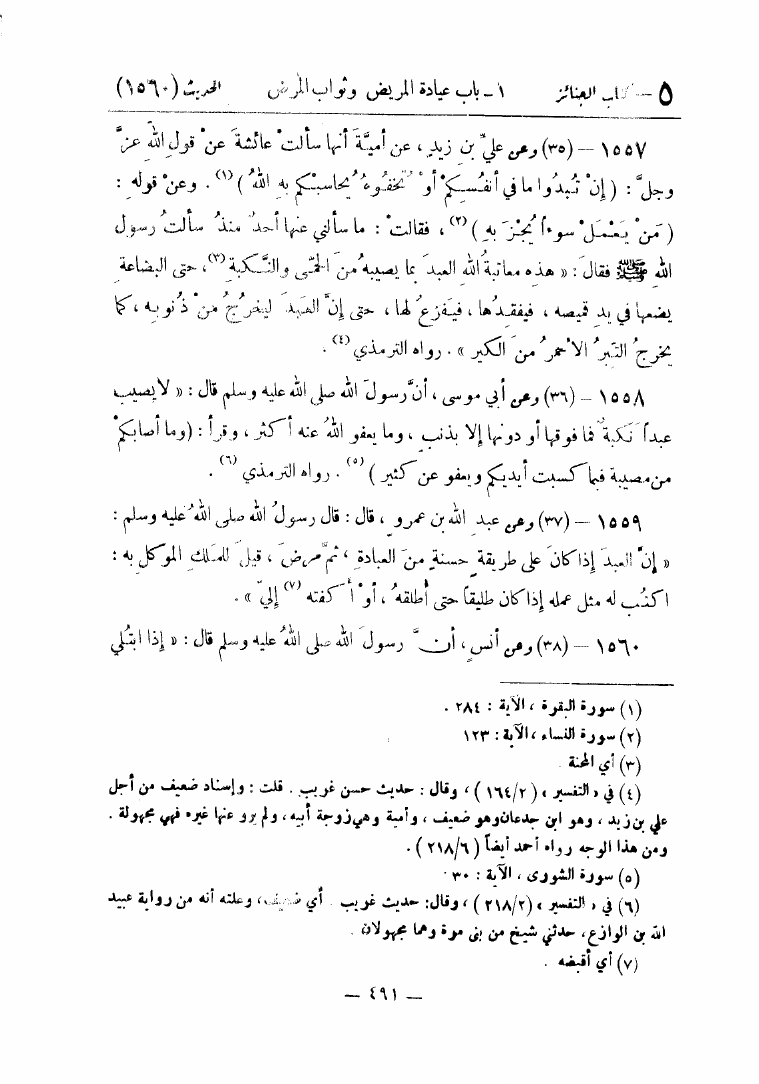 ٥ - كتاب الجنائز ١ - باب عيادة المريض وثواب المرض الحديث (١٥٦٠)
١٥٥٧ - (٣٥) وعن عليِّ بن زيدٍ، عن أميَّةَ أنها سألتْ عائشةَ عنْ قولِ اللهِ عزَّ
وجلَّ: (إنْ تُبدُوا ما في أنفُسِكمْ أوْ تُخفُوهُ يُحاسبْكم بهِ اللهُ)(١). وعنْ قولهِ:
(مَنْ يَعْمَلْ سوءاً يُجْزَ بهِ)(٢)، فقالتْ: ما سألَني عنها أحدٌ منذُ سألتُ رسولَ
اللهِ ﷺ فقال: «هذه معاتبةُ اللهِ العبدَ بما يصيبهُ منَ الحمَّى والنَّكبةِ(٣)، حتى البضاعةِ
يضعها في يدِ قميصه، فيفقِدُها، فيَفزعُ لها، حتى إنَّ العبدَ ليَخرُجُ منْ ذُنوبهِ، كما
يخرجُ التِّبرُ الأحمرُ منَ الكيرِ». رواه الترمذي(٤).
١٥٥٨ - (٣٦) وعن أبي موسى، أنَّ رسولَ الله صلى الله عليه وسلم قال: «لا يصيب
عبداً نكبةٌ فما فوقها أو دونها إلا بذنبٍ، وما يعفو اللهُ عنه أكثر، وقرأ: (وما أصابكمْ
من مصيبة فبما كسبت أيديكم ويعفو عن كثير)(٥). رواه الترمذي(٦).
١٥٥٩ - (٣٧) وعن عبدِ الله بن عمرو، قال: قال رسولُ الله صلى اللهُ عليه وسلم:
«إنَّ العبدَ إذا كانَ على طريقةٍ حسنةٍ منَ العبادةِ، ثمَّ مَرِضَ، قيلَ للمَلَكِ الموكَّلِ به:
اكتُب له مثل عمله إذا كان طليقاً حتى أُطلقهُ، أوْ أكفته(٧) إليَّ».
١٥٦٠ - (٣٨) وعن أنسٍ، أنَّ رسولَ الله صلى اللهُ عليه وسلم قال: «إذا ابتُلي
(١) سورة البقرة، الآية: ٢٨٤.
(٢) سورة النساء، الآية: ١٢٣
(٣) أي المحنة.
(٤) في «التفسير» (١٦٤/٢)، وقال: حديث حسن غريب. قلت: وإسناد ضعيف من أجل
علي بن زيد، وهو ابن جدعان وهو ضعيف، وأمية وهي زوجة أبيه، ولم يرو عنها غيره فهي مجهولة.
ومن هذا الوجه رواه أحمد أيضاً (٢١٨/٦).
(٥) سورة الشورى، الآية: ٣٠
(٦) في «التفسير» (٢١٨/٢)، وقال: حديث غريب. أي ضعيف، وعلته أنه من رواية عبيد
الله بن الوازع، حدثني شيخ من بنى مرة وهما مجهولان.
(٧) أي أقبضه.
— ٤٩١ —